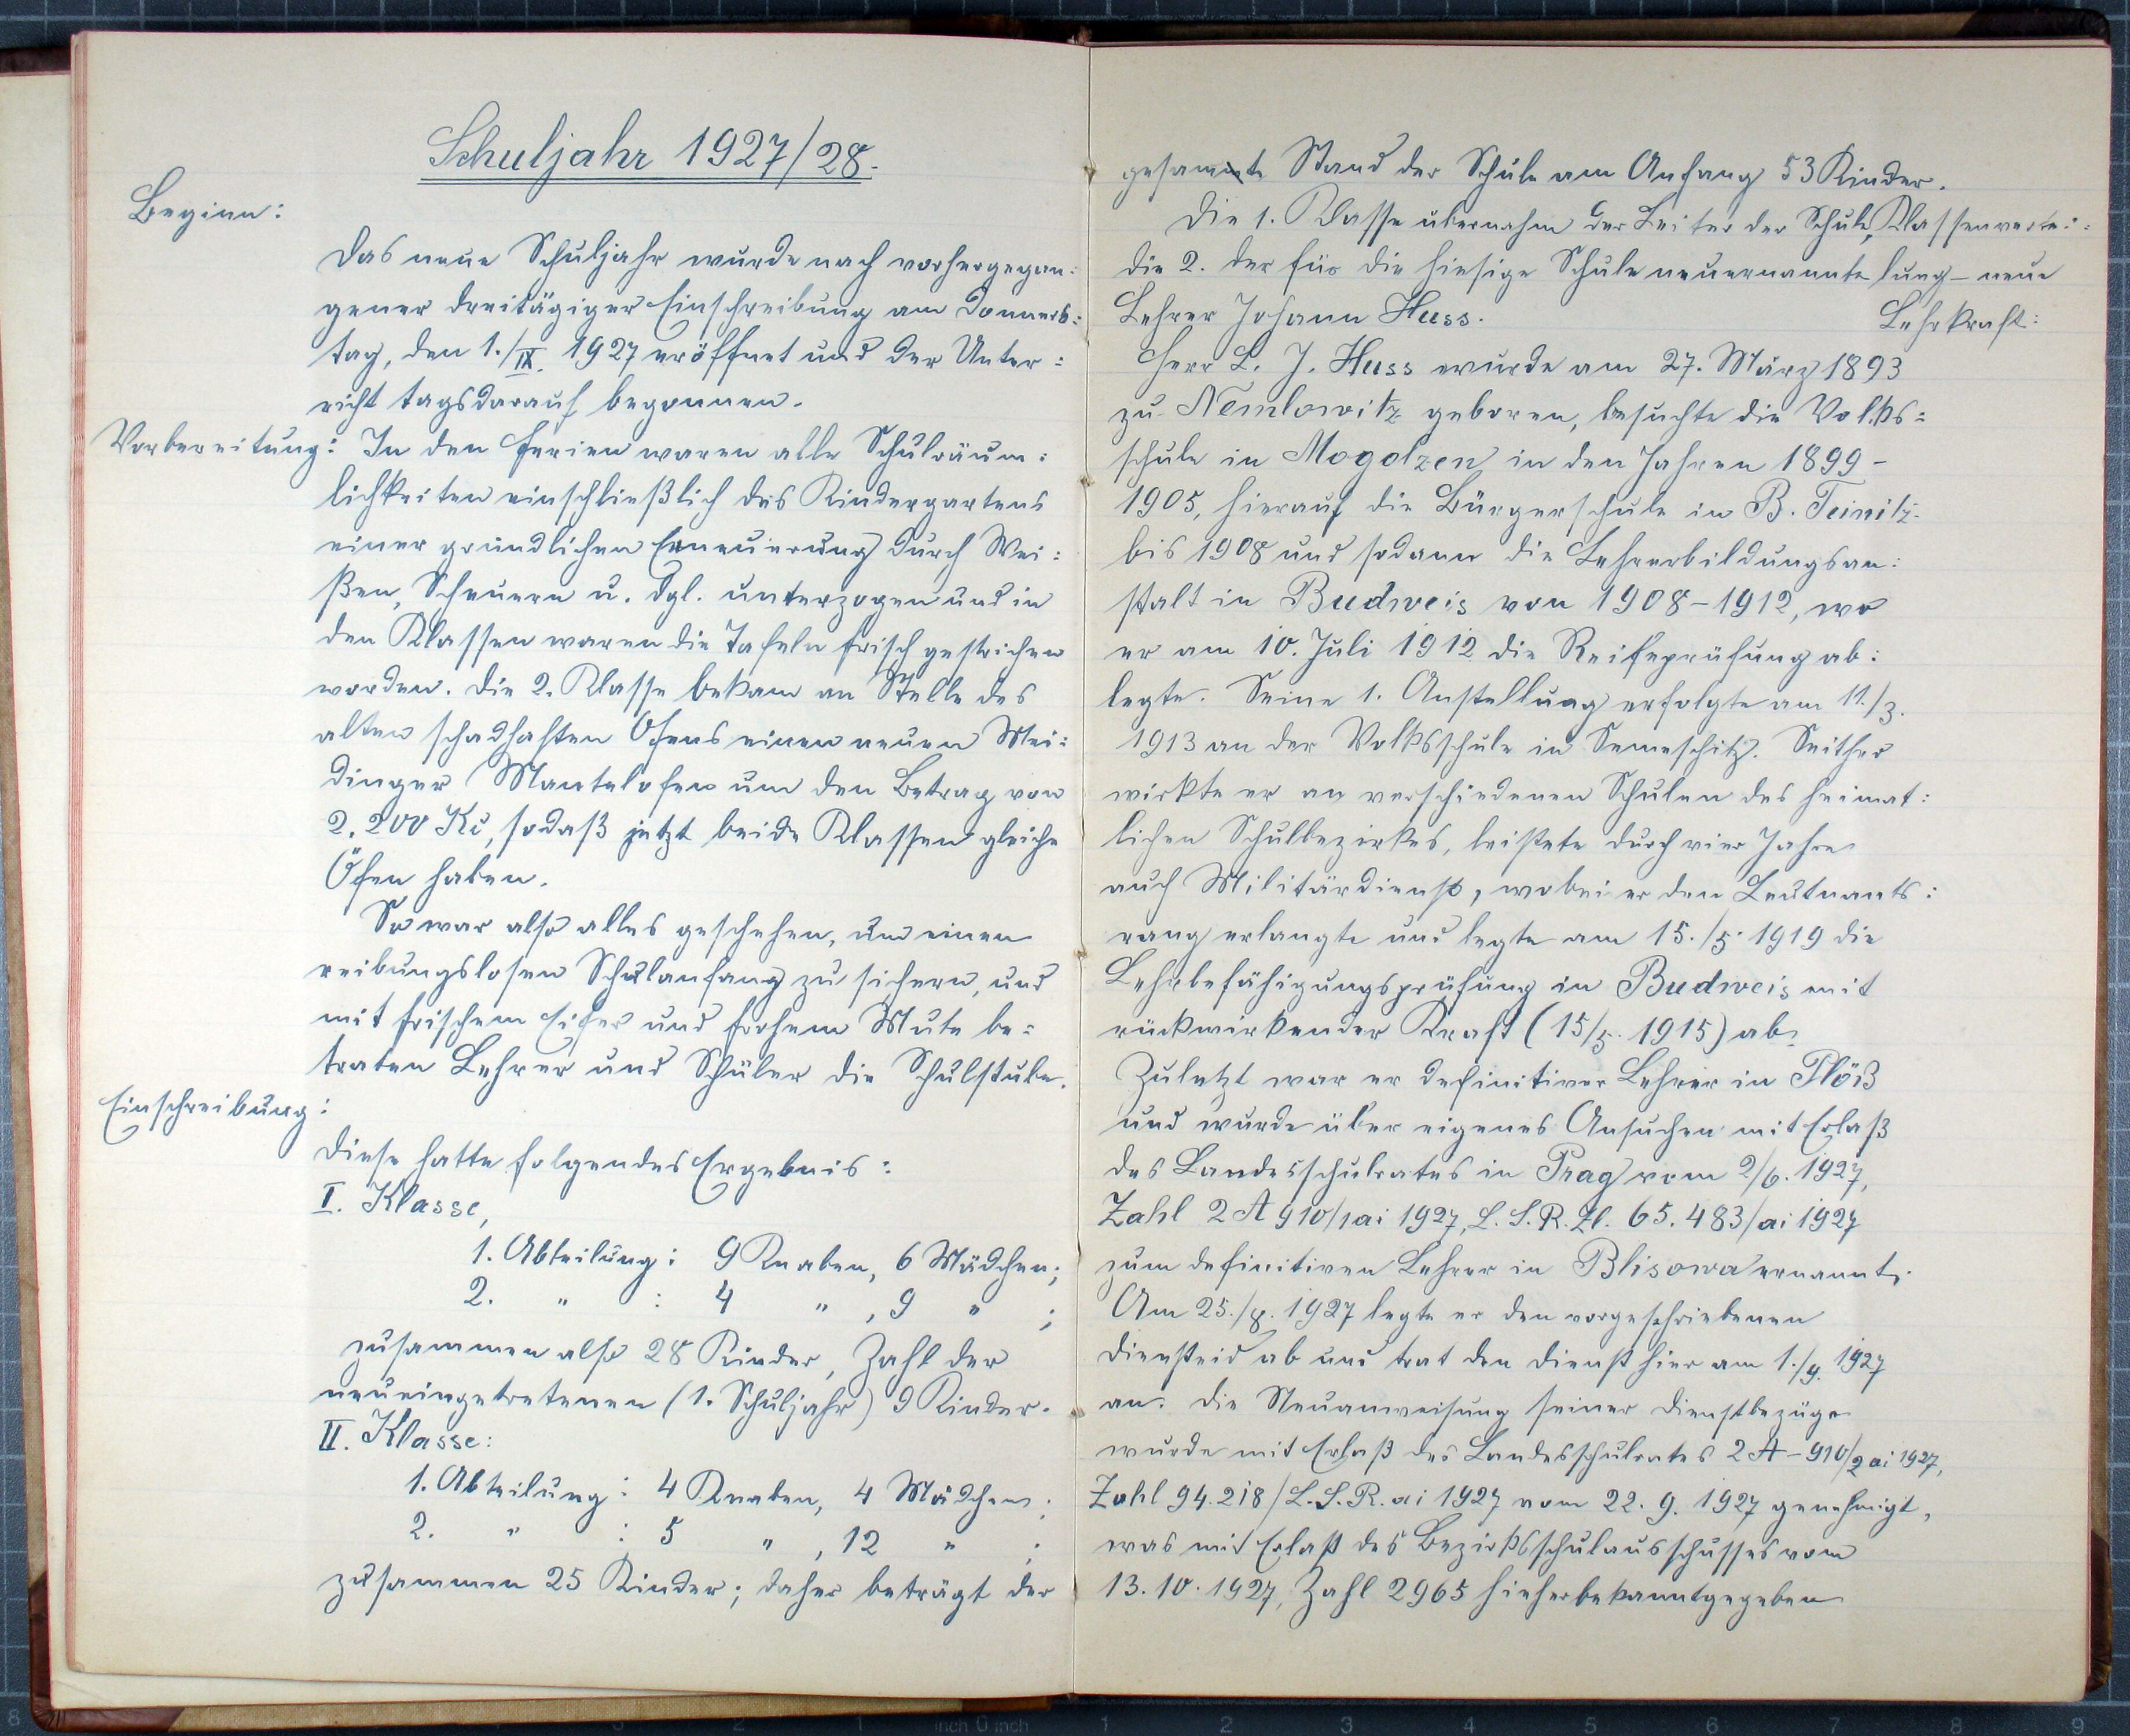 Schuljahr 1927/28.
Beginn:
Das neue Schuljahr wurde nach vorhergegan:
gener dreitägiger Einschreibung am Donners:
tag, den 1./IX. 1927 eröffnet und der Unter:
richt tagsdarauf begonnen.
Vorbereitung: In den Ferien waren alle Schulräum:
lichkeiten einschließlich des Kindergartens
einer gründlichen Erneuerung durch Wei:
ßen, Scheuern u. dgl. unterzogen und in
den Klassen waren die Tafeln frisch gestrichen
worden. Die 2. Klasse bekam an Stelle des
alten schadhaften Ofens einen neuen Mei:
dinger Mantelofen um den Betrag von
2.200 Kč, sodaß jetzt beide Klassen gleiche
Öfen haben.
So war also alles geschehen, um einen
reibungslosen Schulanfang zu sichern, und
mit frischem Eifer und frohem Mute be:
traten Lehrer und Schüler die Schulstube.
Einschreibung:
Diese hatte folgendes Ergebnis:
I. Klasse,
1. Abteilung: 9 Knaben, 6 Mädchen;
2. " : 4 " , 9 " ;
zusammen also 28 Kinder, Zahl der
neueingetretenen (1. Schuljahr) 9 Kinder.
II. Klasse:
1. Abteilung: 4 Knaben, 4 Mädchen;
2. " : 5 " , 12 " ;
zusammen 25 Kinder; daher beträgt der
gesamte Stand der Schule am Anfang 53 Kinder.
Die 1. Klasse übernahm der Leiter der Schule, Klassenvertei:
die 2. der für die hiesige Schule neuernannte lung – neue
Lehrer Johann Huss. Lehrkraft:
Herr L. J. Huss wurde am 27. März 1893
zu Nemlowitz geboren, besuchte die Volks:
schule in Mogolzen in den Jahren 1899 –
1905, hierauf die Bürgerschule in B. Teinitz
bis 1908 und sodann die Lehrerbildungsan:
stalt in Budweis von 1908 – 1912, wo
er am 10. Juli 1912 die Reifeprüfung ab:
legte. Seine 1. Anstellung erfolgte am 11./3.
1913 an der Volksschule in Semeschitz. Seither
wirkte er an verschiedenen Schulen des heimat:
lichen Schulbezirkes, leistete durch vier Jahre
auch Militärdienst, wobei er den Leutnants:
rang erlangte und legte am 15./5. 1919 die
Lehrbefähigungsprüfung in Budweis mit
rückwirkender Kraft (15/5. 1915) ab.
Zuletzt war er definitiver Lehrer in Plöß
und wurde über eigenes Ansuchen mit Erlaß
des Landesschulrates in Prag vom 2/6. 1927,
Zahl 2 A 910/1 ai 1927, L. S. R. Zl. 65.483/ai 1927
zum definitiven Lehrer in Blisowa ernannt.
Am 25./8. 1927 legte er den vorgeschriebenen
Diensteid ab und trat den Dienst hier am 1./9. 1927
an. Die Neuanweisung seiner Dienstbezüge
wurde mit Erlaß des Landesschulrates 2 A – 910/2 ai 1927,
Zahl 94.218/L. S. R. ai 1927 vom 22. 9. 1927 genehmigt,
was mit Erlaß des Bezirksschulausschusses vom
13. 10. 1927, Zahl 2965 hieher bekanntgegeben